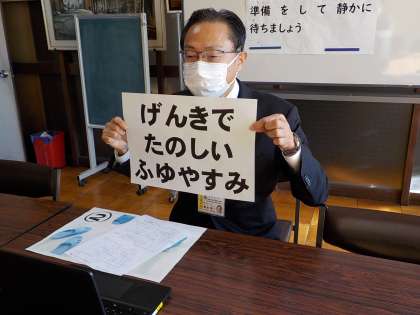 準備をして静かに
待ちましょう
げんきで
たのしい
ふゆやすみ